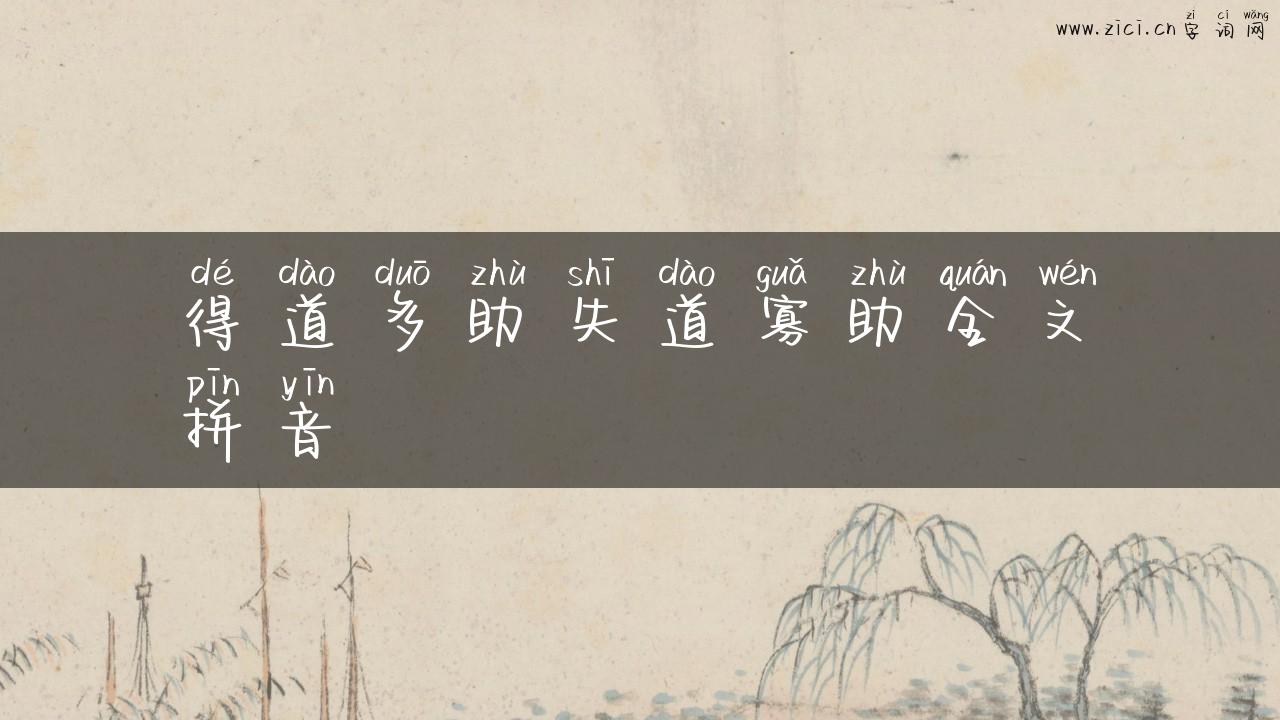 zì cí wǎng
www.zici.cn 字 词 网
dé dào duō zhù shī dào guǎ zhù quán wén
得 道 多 助 失 道 寡 助 全 文
pīn yīn
拼 音